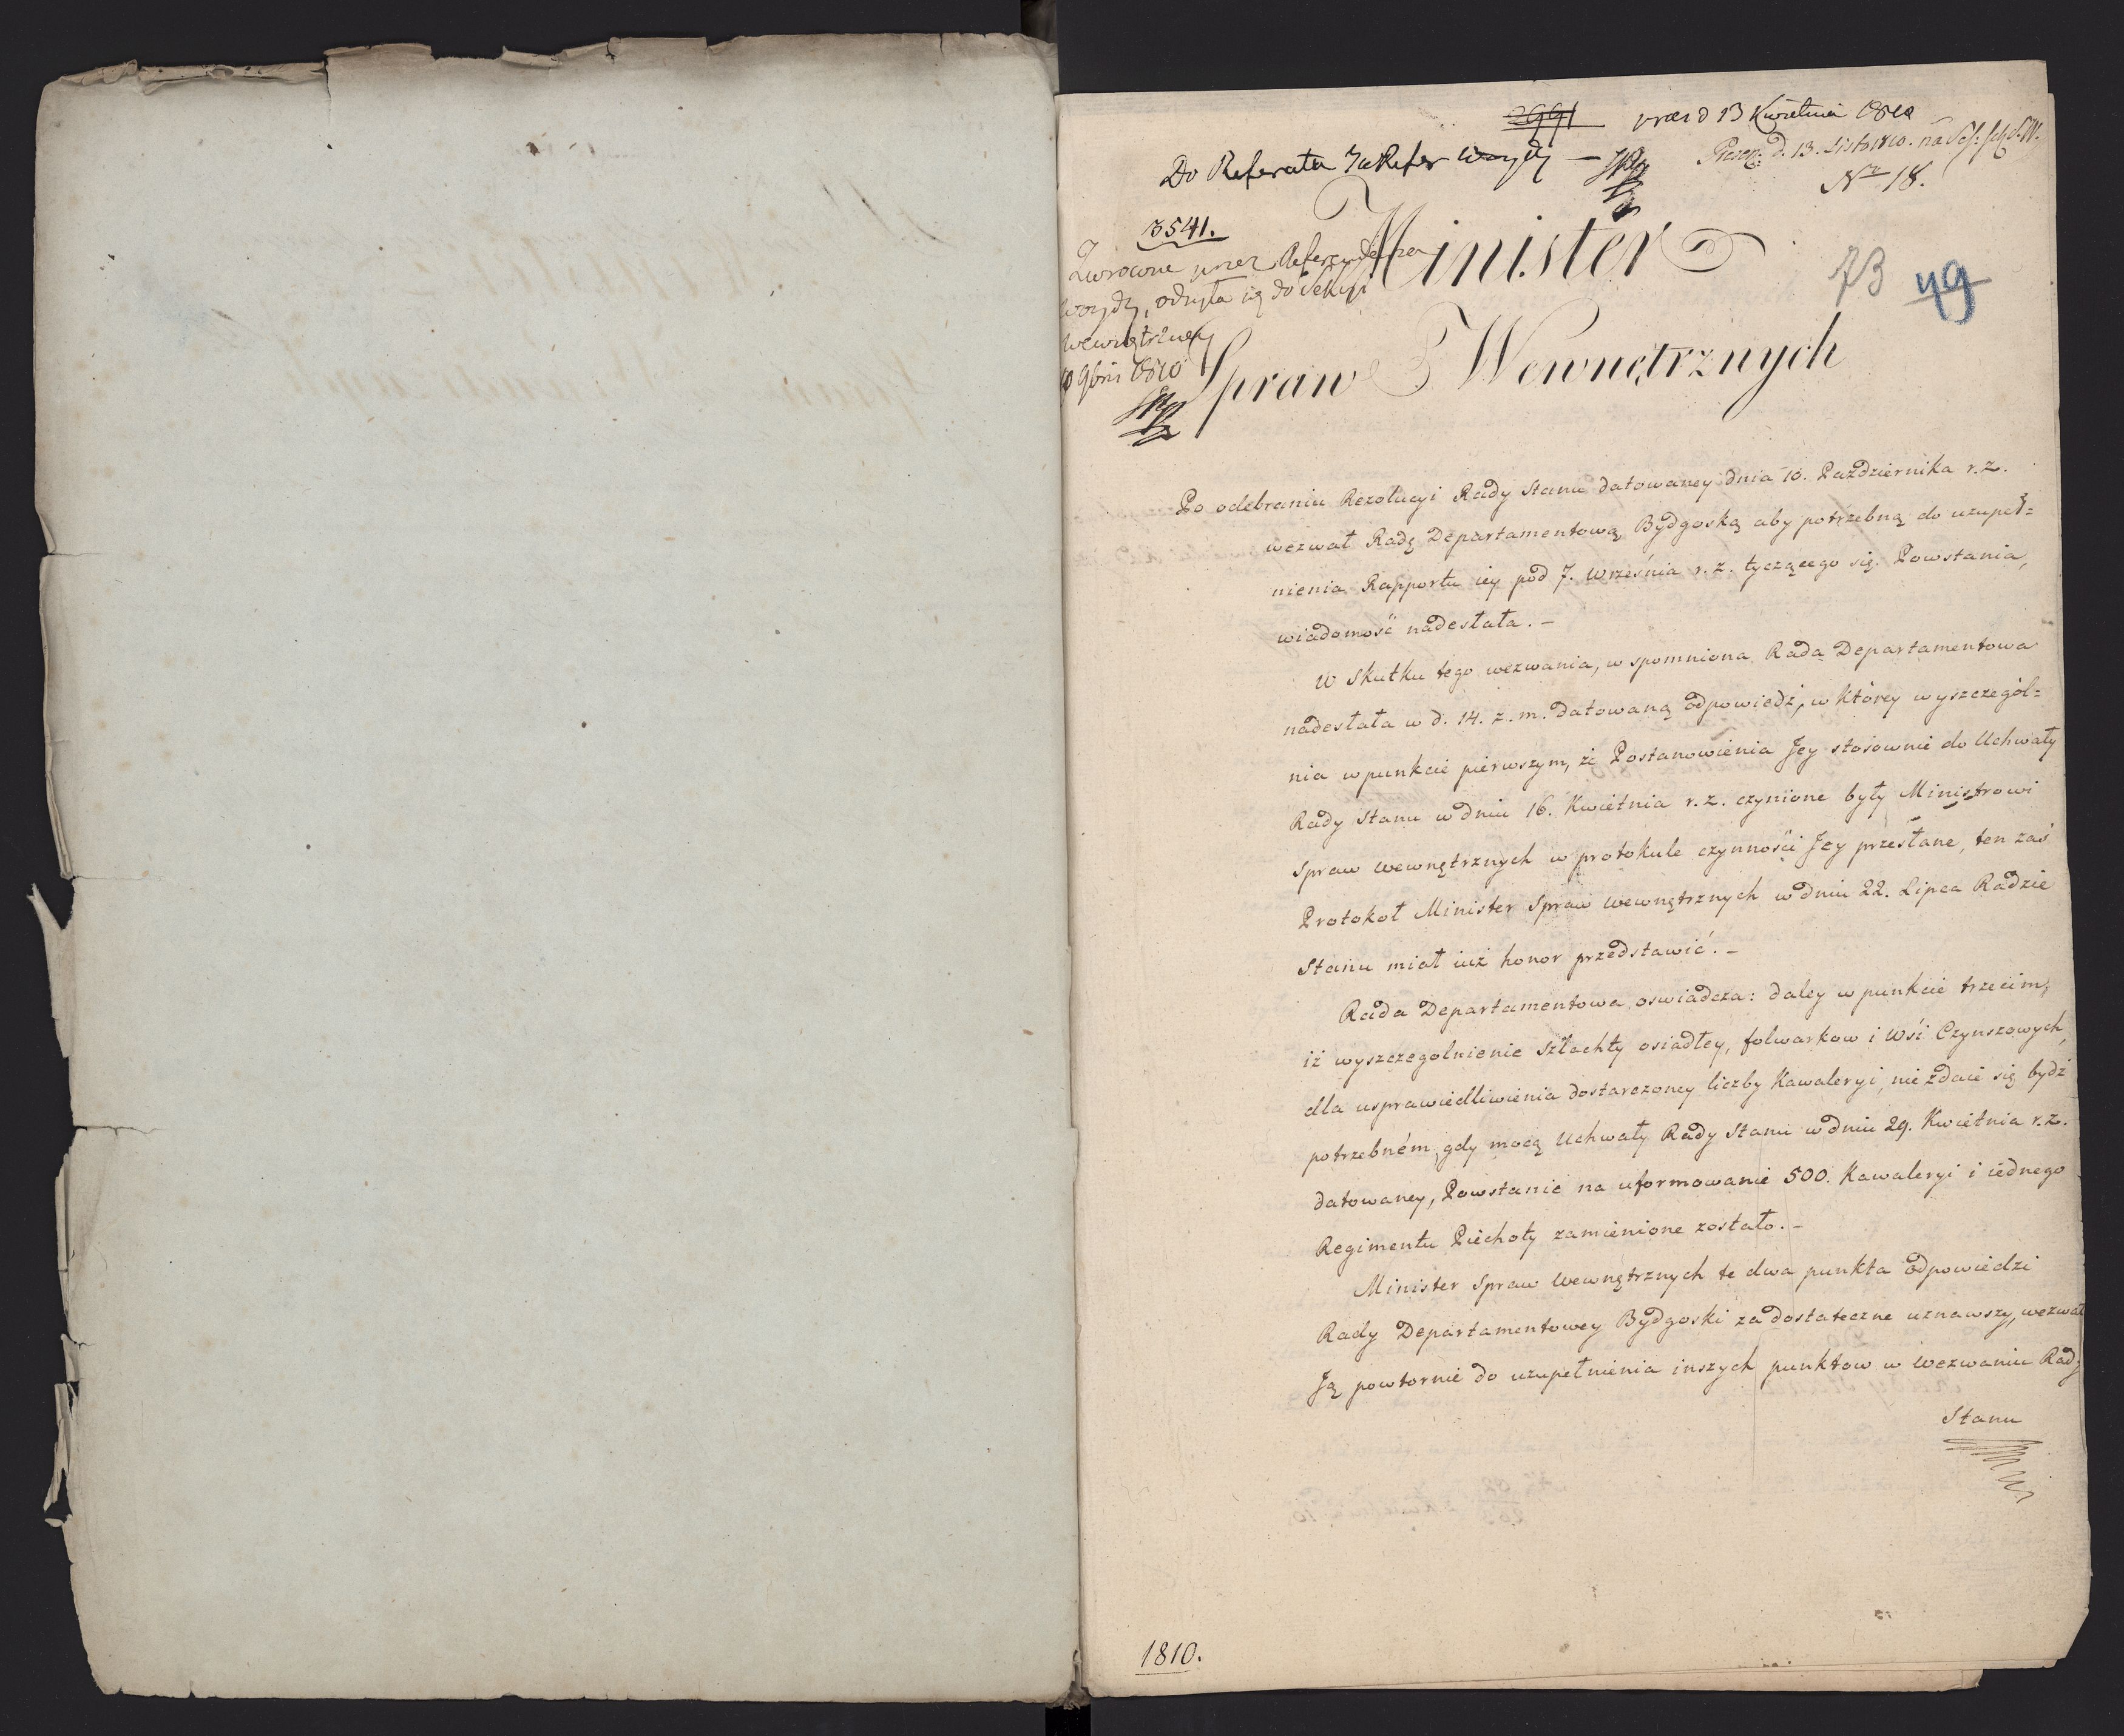 2991
praes d 13 Kwietnia 1810
Do Referatu JW Refer Woydy —
Prezen: d. 13. Listo 1810. na Ses: S. W.
Nr 18.
3541.
Zwrocone przez Referendarza
Woydę, odsyła się do Sekcyi
wewnętrzney
9bris 1810
Minister
73 49
Spraw Wewnętrznych
Po odebraniu Rezolucyi Rady Stanu datowaney dnia 10. Października r. z.
wezwał Radę Departamentową Bydgoską aby potrzebną do uzupeł=
nienia Rapportu iey pod 7. Września r. z. tyczącego się Powstania,
wiadomość nadesłała. –
W Skutku tego wezwania, wspomniona Rada Departamentowa
nadesłała w d. 14. z. m. datowaną odpowiedź, w którey wyszczegól=
nia w punkcie pierwszym, że Postanowienia Jey stosownie do Uchwały
Rady Stanu w dniu 16. Kwietnia r. z. czynione były Ministrowi
Spraw Wewnętrznych w protokule czynności Jey przesłane, ten zaś
Protokoł Minister Spraw Wewnętrznych w dniu 22. Lipca Radzie
Stanu miał iuż honor przedstawić. –
Rada Departamentowa oswiadcza: daley w punkcie trzecim,
iż wyszczegolnienie Szlachty osiadłey, folwarkow i Wśi Czynszowych,
dla usprawiedliwienia dostarczoney liczby Kawaleryi, nie zdaie się bydź
potrzebném, gdy mocą Uchwały Rady Stanu w dniu 29. Kwietnia r. z.
datowaney, Powstanie na uformowanie 500. Kawaleryi i iednego
Regimentu Piechoty zamienione zostało. –
Minister Spraw Wewnętrznych te dwa punkta odpowiedzi
Rady Departamentowey Bydgoski za dostateczne uznawszy, wezwał
Ją powtornie do uzupełnienia inszych punktow w Wezwaniu Rady
Stanu
1810.